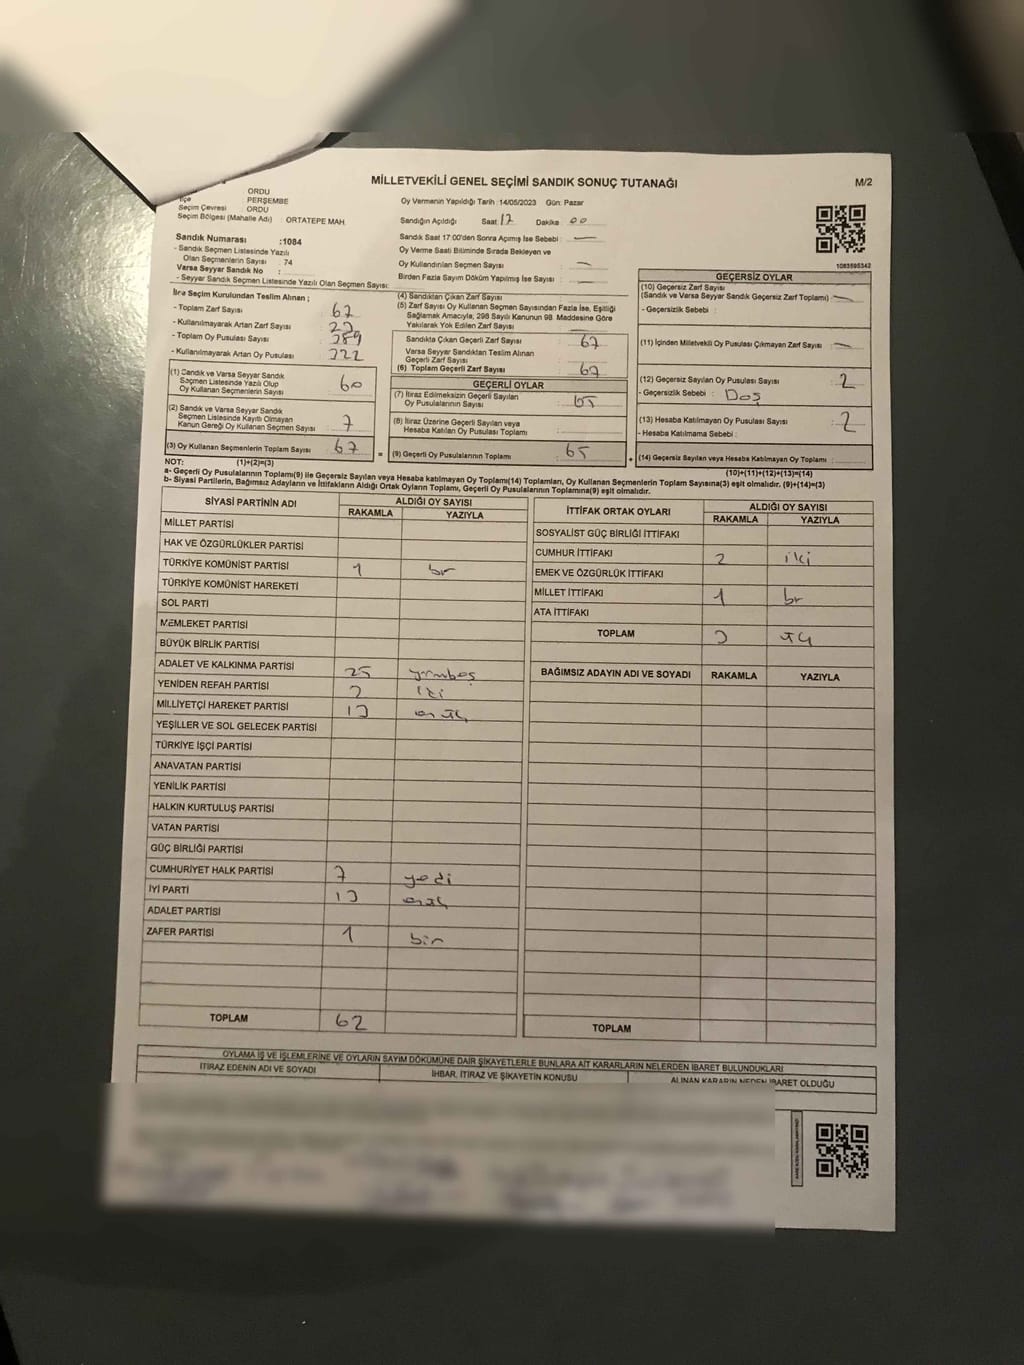 MİLLETVEKİLİ GENEL SEÇİMİ SANDIK SONUÇ TUTANAĞI
M/2
ORDU
İlçe PERŞEMBE
Seçim Çevresi ORDU
Seçim Bölgesi (Mahalle Adı) : ORTATEPE MAH.
Oy Vermenin Yapıldığı Tarih : 14/05/2023 Gün: Pazar
Sandığın Açıldığı Saat 17 Dakika 00
Sandık Saat 17:00'den Sonra Açımış İse Sebebi : —
Oy Verme Saati Bitiminde Sırada Bekleyen ve
Oy Kullandırılan Seçmen Sayısı : —
Birden Fazla Sayım Döküm Yapılmış İse Sayısı : —
Sandık Numarası :1084
- Sandık Seçmen Listesinde Yazılı
Olan Seçmenlerin Sayısı : 74
Varsa Seyyar Sandık No :
- Seyyar Sandık Seçmen Listesinde Yazılı Olan Seçmen Sayısı:
1083595342
İlçe Seçim Kurulundan Teslim Alınan ;
- Toplam Zarf Sayısı 67
- Kullanılmayarak Artan Zarf Sayısı
- Toplam Oy Pusulası Sayısı 389
- Kullanılmayarak Artan Oy Pusulası 322
(1) Sandık ve Varsa Seyyar Sandık
Seçmen Listesinde Yazılı Olup
Oy Kullanan Seçmenlerin Sayısı 60
(2) Sandık ve Varsa Seyyar Sandık
Seçmen Listesinde Kayıtlı Olmayan
Kanun Gereği Oy Kullanan Seçmen Sayısı 7
(3) Oy Kullanan Seçmenlerin Toplam Sayısı 67
(4) Sandıktan Çıkan Zarf Sayısı
(5) Zarf Sayısı Oy Kullanan Seçmen Sayısından Fazla İse, Eşitliği
Sağlamak Amacıyla; 298 Sayılı Kanunun 98. Maddesine Göre
Yakılarak Yok Edilen Zarf Sayısı
Sandıkta Çıkan Geçerli Zarf Sayısı 67
Varsa Seyyar Sandıktan Teslim Alınan
Geçerli Zarf Sayısı
(6) Toplam Geçerli Zarf Sayısı 67
GEÇERLİ OYLAR
(7) İtiraz Edilmeksizin Geçerli Sayılan
Oy Pusulalarının Sayısı 65
(8) İtiraz Üzerine Geçerli Sayılan veya
Hesaba Katılan Oy Pusulaları Toplamı
= (9) Geçerli Oy Pusulalarının Toplamı 65
GEÇERSİZ OYLAR
(10) Geçersiz Zarf Sayısı
(Sandık ve Varsa Seyyar Sandık Geçersiz Zarf Toplamı) —
- Geçersizlik Sebebi :
(11) İçinden Milletvekili Oy Pusulası Çıkmayan Zarf Sayısı —
(12) Geçersiz Sayılan Oy Pusulası Sayısı 2
- Geçersizlik Sebebi : Boş
(13) Hesaba Katılmayan Oy Pusulası Sayısı 2
- Hesaba Katılmama Sebebi :
+ (14) Geçersiz Sayılan veya Hesaba Katılmayan Oy Toplamı :
NOT: (1)+(2)=(3)
(10)+(11)+(12)+(13)=(14)
a- Geçerli Oy Pusulalarının Toplamı(9) ile Geçersiz Sayılan veya Hesaba katılmayan Oy Toplamı(14) Toplamları, Oy Kullanan Seçmenlerin Toplam Sayısına(3) eşit olmalıdır. (9)+(14)=(3)
b- Siyasi Partilerin, Bağımsız Adayların ve İttifakların Aldığı Ortak Oyların Toplamı, Geçerli Oy Pusulalarının Toplamına(9) eşit olmalıdır.
SİYASİ PARTİNİN ADI ALDIĞI OY SAYISI
RAKAMLA YAZIYLA
MİLLET PARTİSİ
HAK VE ÖZGÜRLÜKLER PARTİSİ
TÜRKİYE KOMÜNİST PARTİSİ 1 bir
TÜRKİYE KOMÜNİST HAREKETİ
SOL PARTİ
MEMLEKET PARTİSİ
BÜYÜK BİRLİK PARTİSİ
ADALET VE KALKINMA PARTİSİ 25 yirmibeş
YENİDEN REFAH PARTİSİ 2 iki
MİLLİYETÇİ HAREKET PARTİSİ 13 onüç
YEŞİLLER VE SOL GELECEK PARTİSİ
TÜRKİYE İŞÇİ PARTİSİ
ANAVATAN PARTİSİ
YENİLİK PARTİSİ
HALKIN KURTULUŞ PARTİSİ
VATAN PARTİSİ
GÜÇ BİRLİĞİ PARTİSİ
CUMHURİYET HALK PARTİSİ 7 yedi
İYİ PARTİ 13 onüç
ADALET PARTİSİ
ZAFER PARTİSİ 1 bir
TOPLAM 62
İTTİFAK ORTAK OYLARI ALDIĞI OY SAYISI
RAKAMLA YAZIYLA
SOSYALİST GÜÇ BİRLİĞİ İTTİFAKI
CUMHUR İTTİFAKI 2 iki
EMEK VE ÖZGÜRLÜK İTTİFAKI
MİLLET İTTİFAKI 1 bir
ATA İTTİFAKI
TOPLAM 3 üç
BAĞIMSIZ ADAYIN ADI VE SOYADI RAKAMLA YAZIYLA
TOPLAM
OYLAMA İŞ VE İŞLEMLERİNE VE OYLARIN SAYIM DÖKÜMÜNE DAİR ŞİKAYETLERLE BUNLARA AİT KARARLARIN NELERDEN İBARET BULUNDUKLARI
İTİRAZ EDENİN ADI VE SOYADI İHBAR, İTİRAZ VE ŞİKAYETİN KONUSU ALINAN KARARIN NEDEN İBARET OLDUĞU